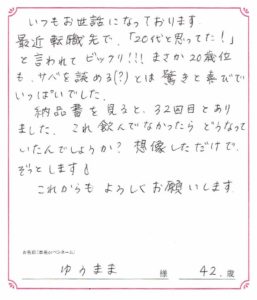 いつもお世話になっております。
最近転職先で、「20代と思ってた!」
と言われてビックリ!!! まさか20歳位
も、サバを読める(?)とは驚きと喜びで
いっぱいでした。
納品書を見ると、32回目とあり
ました。これ飲んでなかったらどうなって
いたんでしょうか? 想像しただけで
ぞっとします
これからもよろしくお願いします。
お名前(本名orペンネーム)
ゆうまま 様 42.歳